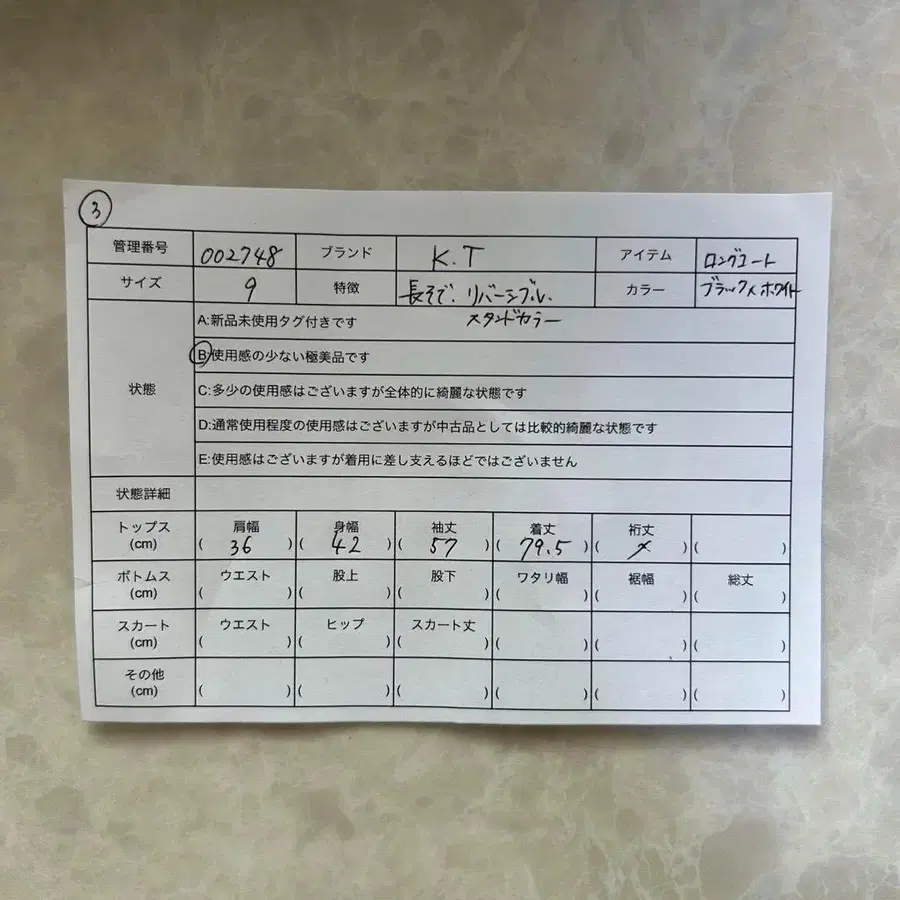 3
管理番号 002748 ブランド K.T アイテム ロングコート
サイズ 9 特徴 長そで、リバーシブル、 カラー ブラック×ホワイト
スタンドカラー
A:新品未使用タグ付きです
状態 B:使用感の少ない極美品です
C:多少の使用感はございますが全体的に綺麗な状態です
D:通常使用程度の使用感はございますが中古品としては比較的綺麗な状態です
E:使用感はございますが着用に差し支えるほどではございません
状態詳細
トップス 肩幅 身幅 袖丈 着丈 裄丈
(cm) ( 36 ) ( 42 ) ( 57 ) ( 79.5 ) ( × ) ( )
ボトムス ウエスト 股上 股下 ワタリ幅 裾幅 総丈
(cm) ( ) ( ) ( ) ( ) ( ) ( )
スカート ウエスト ヒップ スカート丈
(cm) ( ) ( ) ( ) ( ) ( ) ( )
その他
(cm) ( ) ( ) ( ) ( ) ( ) ( )